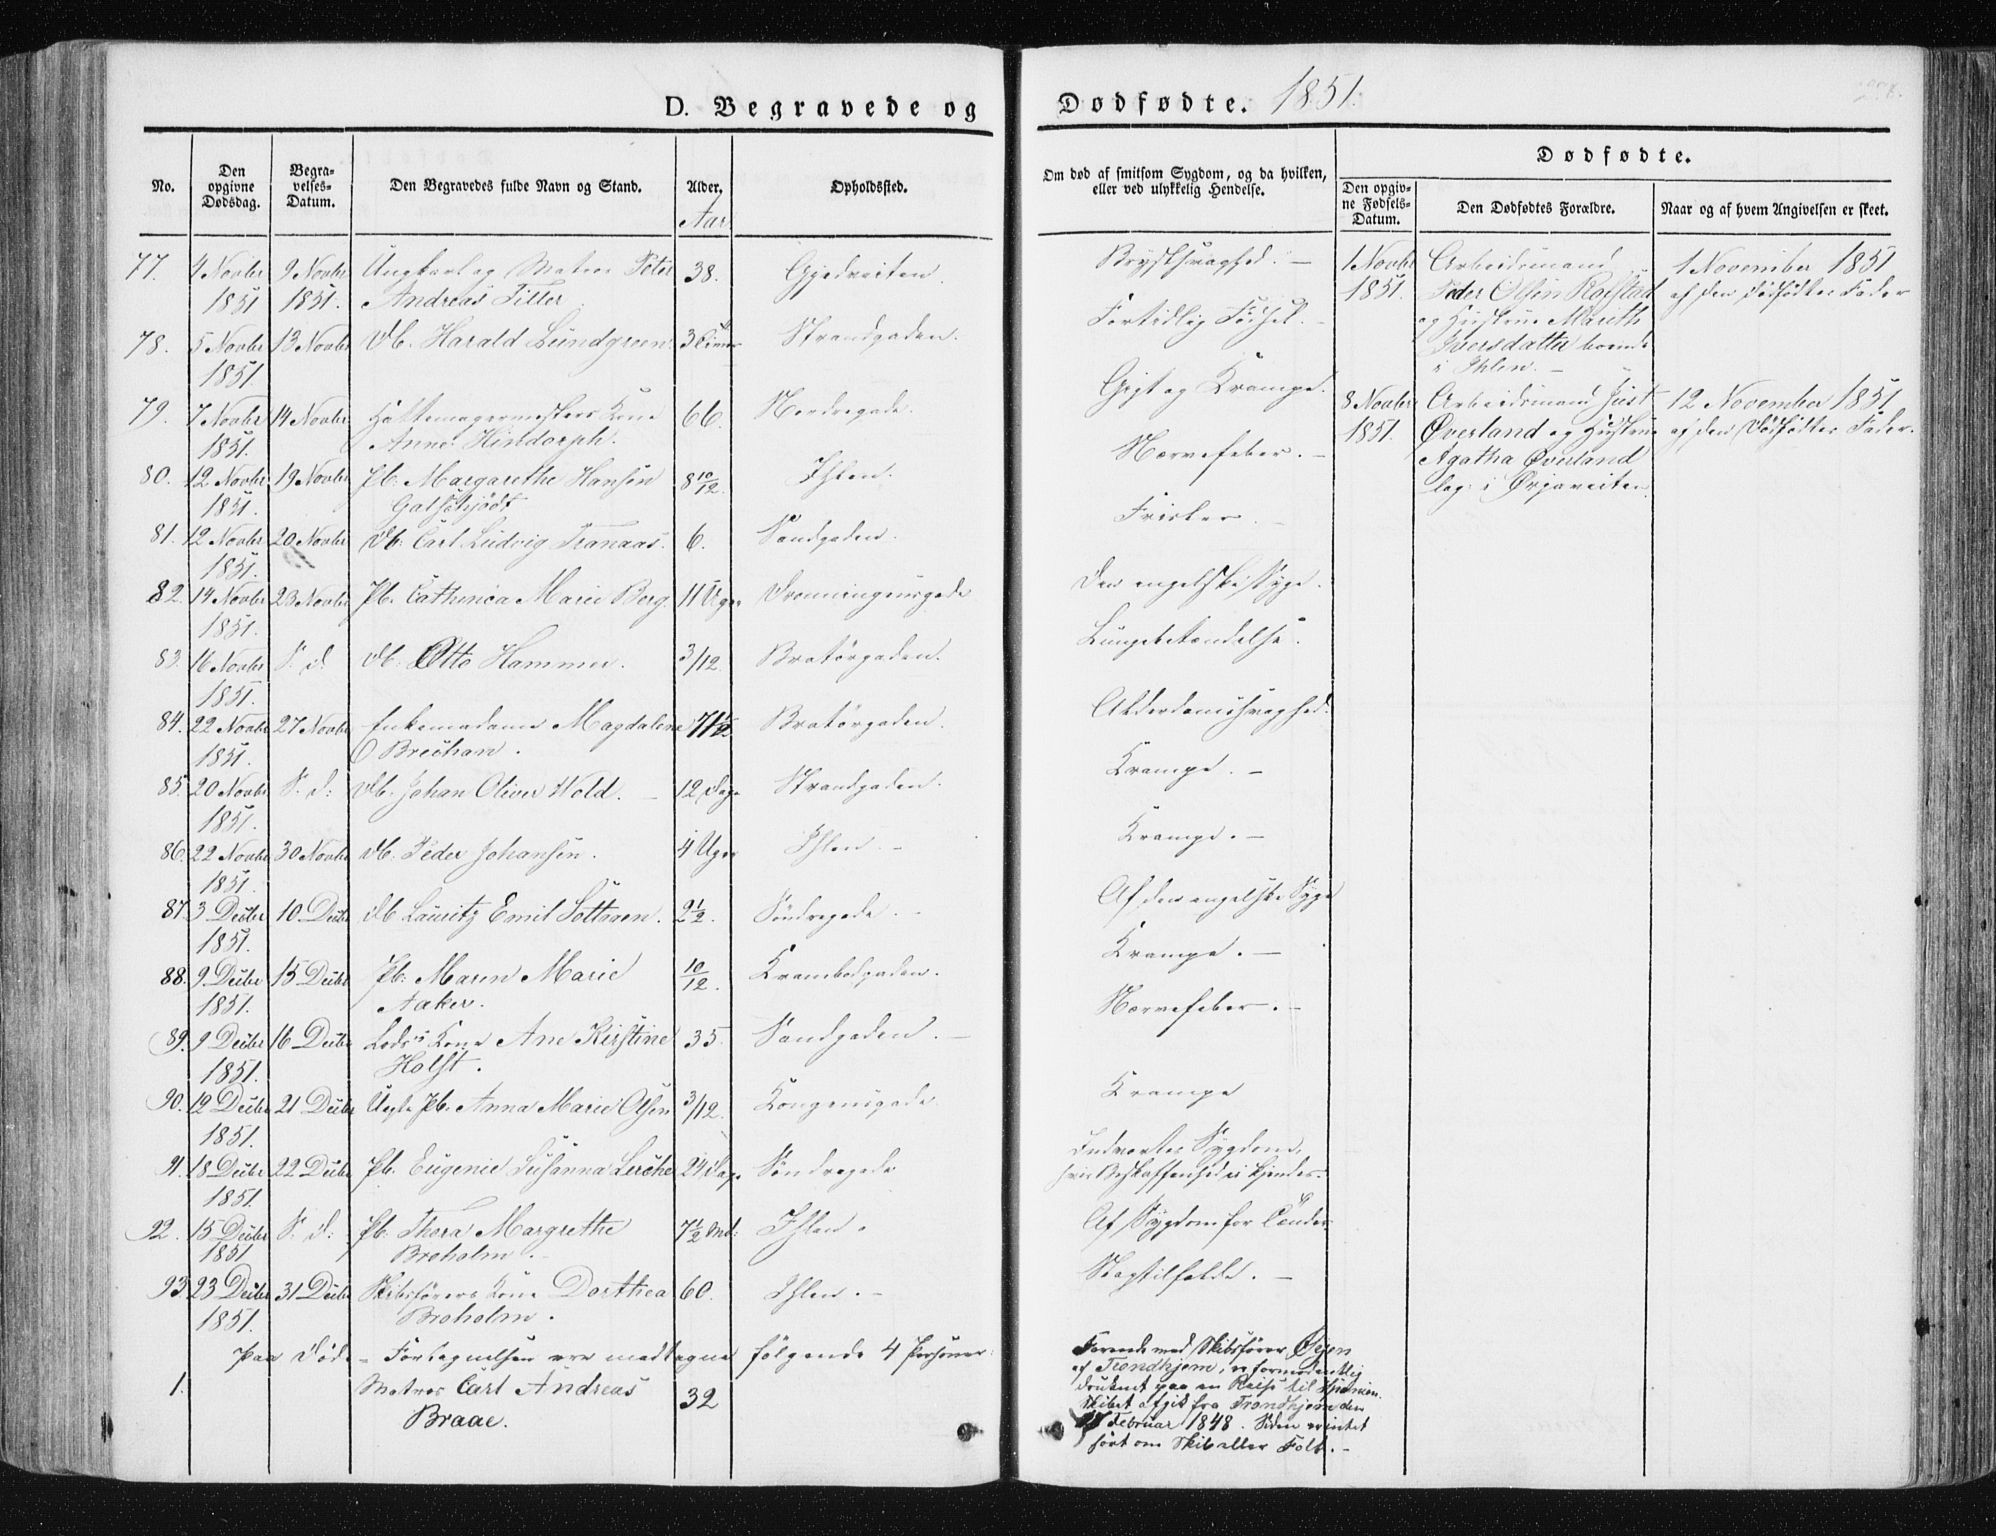 D. Begravede og Dødfødte. 1851.
No.
Den opgivne Dødsdag.
Begravelses-Datum.
Den Begravedes fulde Navn og Stand.
Alder.
Aar
Opholdssted.
Om død af smitsom Sygdom, og da hvilken, eller ved ulykkelig Hendelse.
Dødfødte.
Den opgivne Fødsels-Datum.
Den Dødfødtes Forældre.
Naar og af hvem Angivelsen er skeet.
77. 4 Novbr 9 Novbr Ungkarl og Matros Peter 38. Gjedveiten. Brystsvaghed. –
1851 1851. Andreas Tiller
78. 5 Novbr 13 Novbr Db. Harald Lundgreen. 3 Timer Strandgaden. Fortidlig Födsel. –
1851.
79. 7 Novbr 14 Novbr Hattemagermesters Kone 66. Nordregade. Gigt og Krampe.
1851. Anne Hindorph.
80. 12 Novbr 19 Novbr Pb. Margarethe Hansen 8 10/12. Ihlen. Nervefeber. –
1851. Galschjödt
81. 12 Novbr 20 Novbr Db. Carl Ludvig Tranaas. 6. Sandgaden. Frisler. –
1851.
82. 14 Novbr 23 Novbr Pb. Cathinca Marie Berg. 11 Uger Dronningensgade Den engelske Syge.
1851.
83. 16 Novbr S. d. Db. Otto Hammer. 3/12. Bratörgaden. Lungebetændelse.
1851.
84. 22 Novbr 27 Novbr Enkemadame Magdalene 71 1/2 Bratörgaden. Alderdomssvaghed.
1851. Brechan.
85. 20 Novbr S. d: Db. Johan Oliver Wold. – 12 Dage Strandgaden. Krampe. –
1851.
86. 22 Novbr 30 Novbr Db. Peder Johansen. 4 Uger Ihlen. – Krampe. –
1851.
87. 3 Decbr 10 Decbr Db Lauritz Emil Sottrven. 2 1/2. Söndregade. – Af den engelske Syge
1851.
88. 9 Decbr 15 Decbr Pb. Maren Marie 10/12. Krambodgaden. Krampe. –
1851. Aaker.
89. 9 Decbr 16 Decbr Lods's Kone Ane Kirstine 35. Sandgaden. – Nervefeber. –
1851. Holst.
90. 12 Decbr 21 Decbr Uægte Pb. Anna Marie Olsen 3/12. Kongensgade. Krampe
1851.
91. 18 Decbr 22 Decbr Pb. Eugenie Susanna Lerche 24 Dage Söndregade Indvortes Sygdom,
1851. hvis Beskaffenhed ei kjendes.
92. 15 Decbr S. d: Pb. Thora Margrethe 7 1/2 Md: Ihlen. Af Sygdom for Tænder
1851 Broholm.
93. 23 Decbr 31 Decbr Skibsförers Kone Dorthea 60. Ihlen. – Slagtilfælde. –
1851. Broholm.
Paa Döds-Fortegnelsen ere modtagne følgende 4 Personer:
1. Matros Carl Andreas 32
Braae.
Farende med Skibsfører Öyen
af Trondhjem, er formodentlig
druknet paa en Reise til Spanien.
Skibet afgik fra Trondhjem den
Februar 1848. Siden er intet
hört om Skib eller Folk. –
1 Novbr Arbeidsmand 1 November 1851
1851. Peder Olsen Rolstad af den Dödfödtes Fader
og Hustrue Mareth
Iversdatter boende
i Ihlen. –
8 Novbr Arbeidsmand Just 12 November 1851
1851. Øverland og Hustrue af den Dödfödtes Fader.
Agatha Øverland
log: i Ørjaveiten.